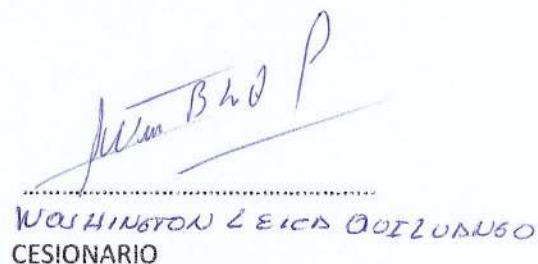 WASHINGTON LEICA QUILUANGO
CESIONARIO